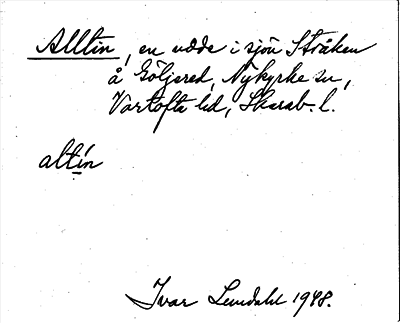 Alltin, en udde i sjön Stråken
å Göljared, Nykyrke sn,
Vartofta hd, Skarab. l.
altín
Ivar Lundahl 1948.